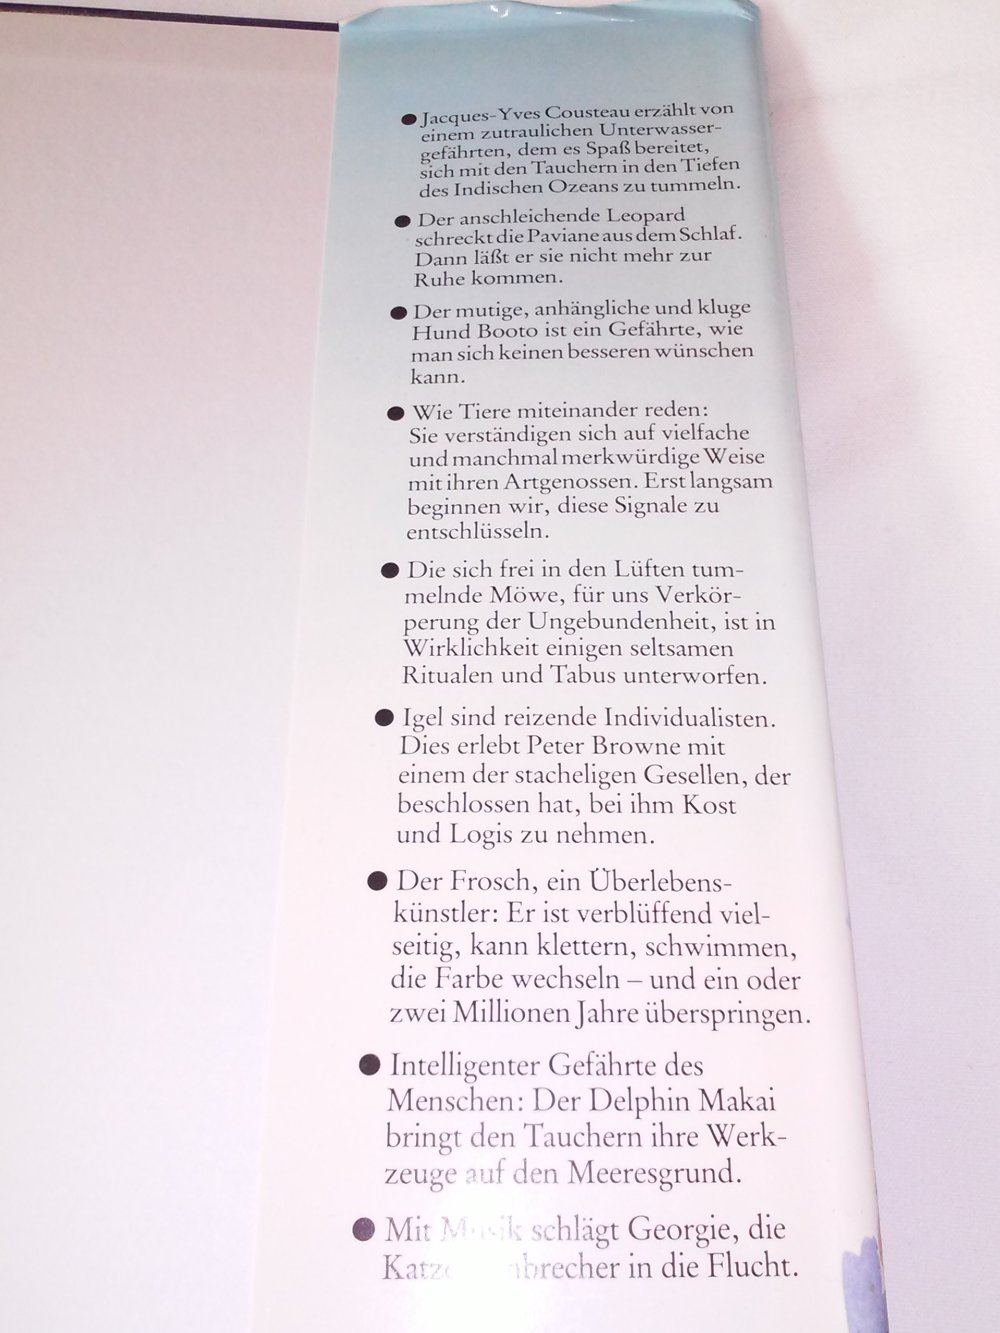 ● Jacques-Yves Cousteau erzählt von
einem zutraulichen Unterwasser-
gefährten, dem es Spaß bereitet,
sich mit den Tauchern in den Tiefen
des Indischen Ozeans zu tummeln.
● Der anschleichende Leopard
schreckt die Paviane aus dem Schlaf.
Dann läßt er sie nicht mehr zur
Ruhe kommen.
● Der mutige, anhängliche und kluge
Hund Booto ist ein Gefährte, wie
man sich keinen besseren wünschen
kann.
● Wie Tiere miteinander reden:
Sie verständigen sich auf vielfache
und manchmal merkwürdige Weise
mit ihren Artgenossen. Erst langsam
beginnen wir, diese Signale zu
entschlüsseln.
● Die sich frei in den Lüften tum-
melnde Möwe, für uns Verkör-
perung der Ungebundenheit, ist in
Wirklichkeit einigen seltsamen
Ritualen und Tabus unterworfen.
● Igel sind reizende Individualisten.
Dies erlebt Peter Browne mit
einem der stacheligen Gesellen, der
beschlossen hat, bei ihm Kost
und Logis zu nehmen.
● Der Frosch, ein Überlebens-
künstler: Er ist verblüffend viel-
seitig, kann klettern, schwimmen,
die Farbe wechseln – und ein oder
zwei Millionen Jahre überspringen.
● Intelligenter Gefährte des
Menschen: Der Delphin Makai
bringt den Tauchern ihre Werk-
zeuge auf den Meeresgrund.
● Mit Musik schlägt Georgie, die
in die Flucht.